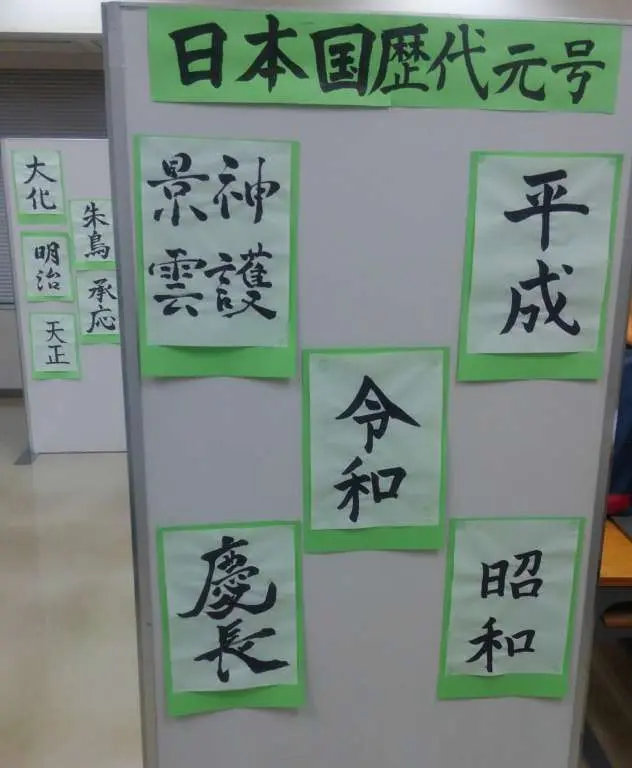 日本国歴代元号
平成
神護
景雲
令和
昭和
慶長
朱鳥
承応
大化
明治
天正